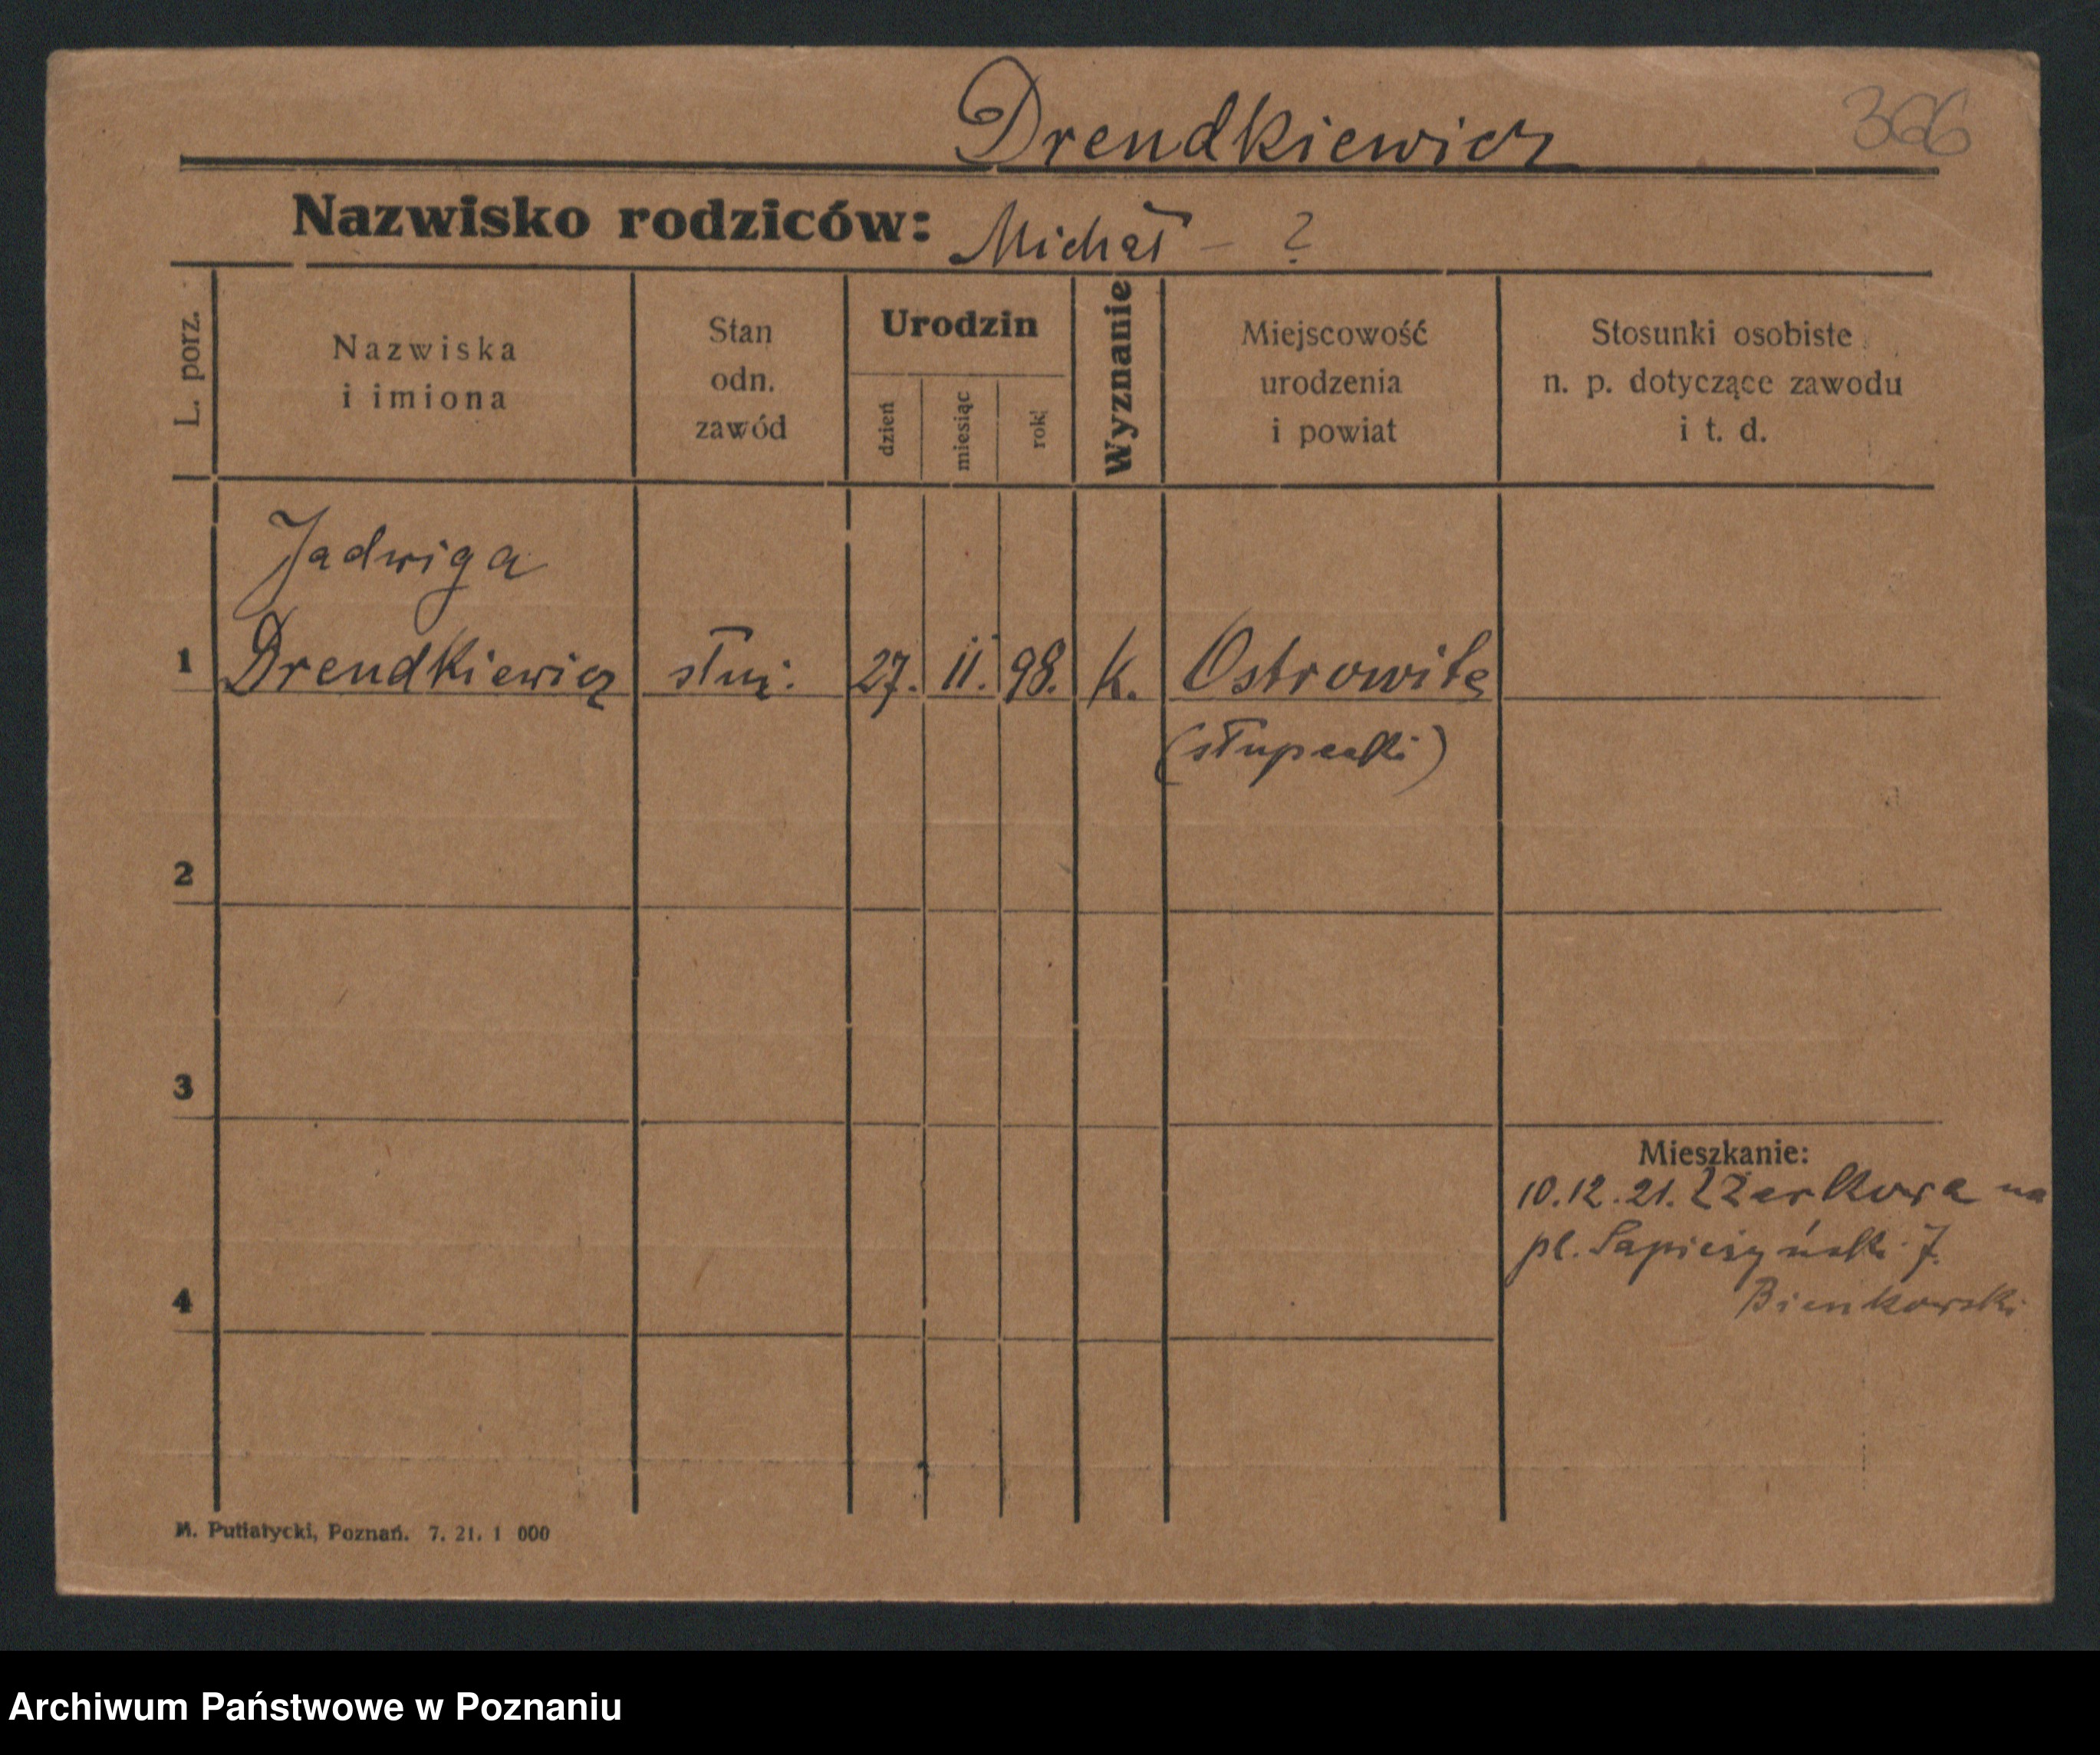 Drendkiewicz
366
Nazwisko rodziców: Michał – ?
L. porz.
Nazwiska
i imiona
Stan
odn.
zawód
Urodzin
dzień
miesiąc
rok
Wyznanie
Miejscowość
urodzenia
i powiat
Stosunki osobiste
n. p. dotyczące zawodu
i t. d.
Jadwiga
1 Drendkiewicz służ. 27. 11. 98. k. Ostrowite
(słupecki)
2
3
Mieszkanie:
10.12.21. Z Żerkowa na
pl. Sapieżyński 7.
Bienkowski
4
M. Putiatycki, Poznań. 7. 21. 1 000
Archiwum Państwowe w Poznaniu